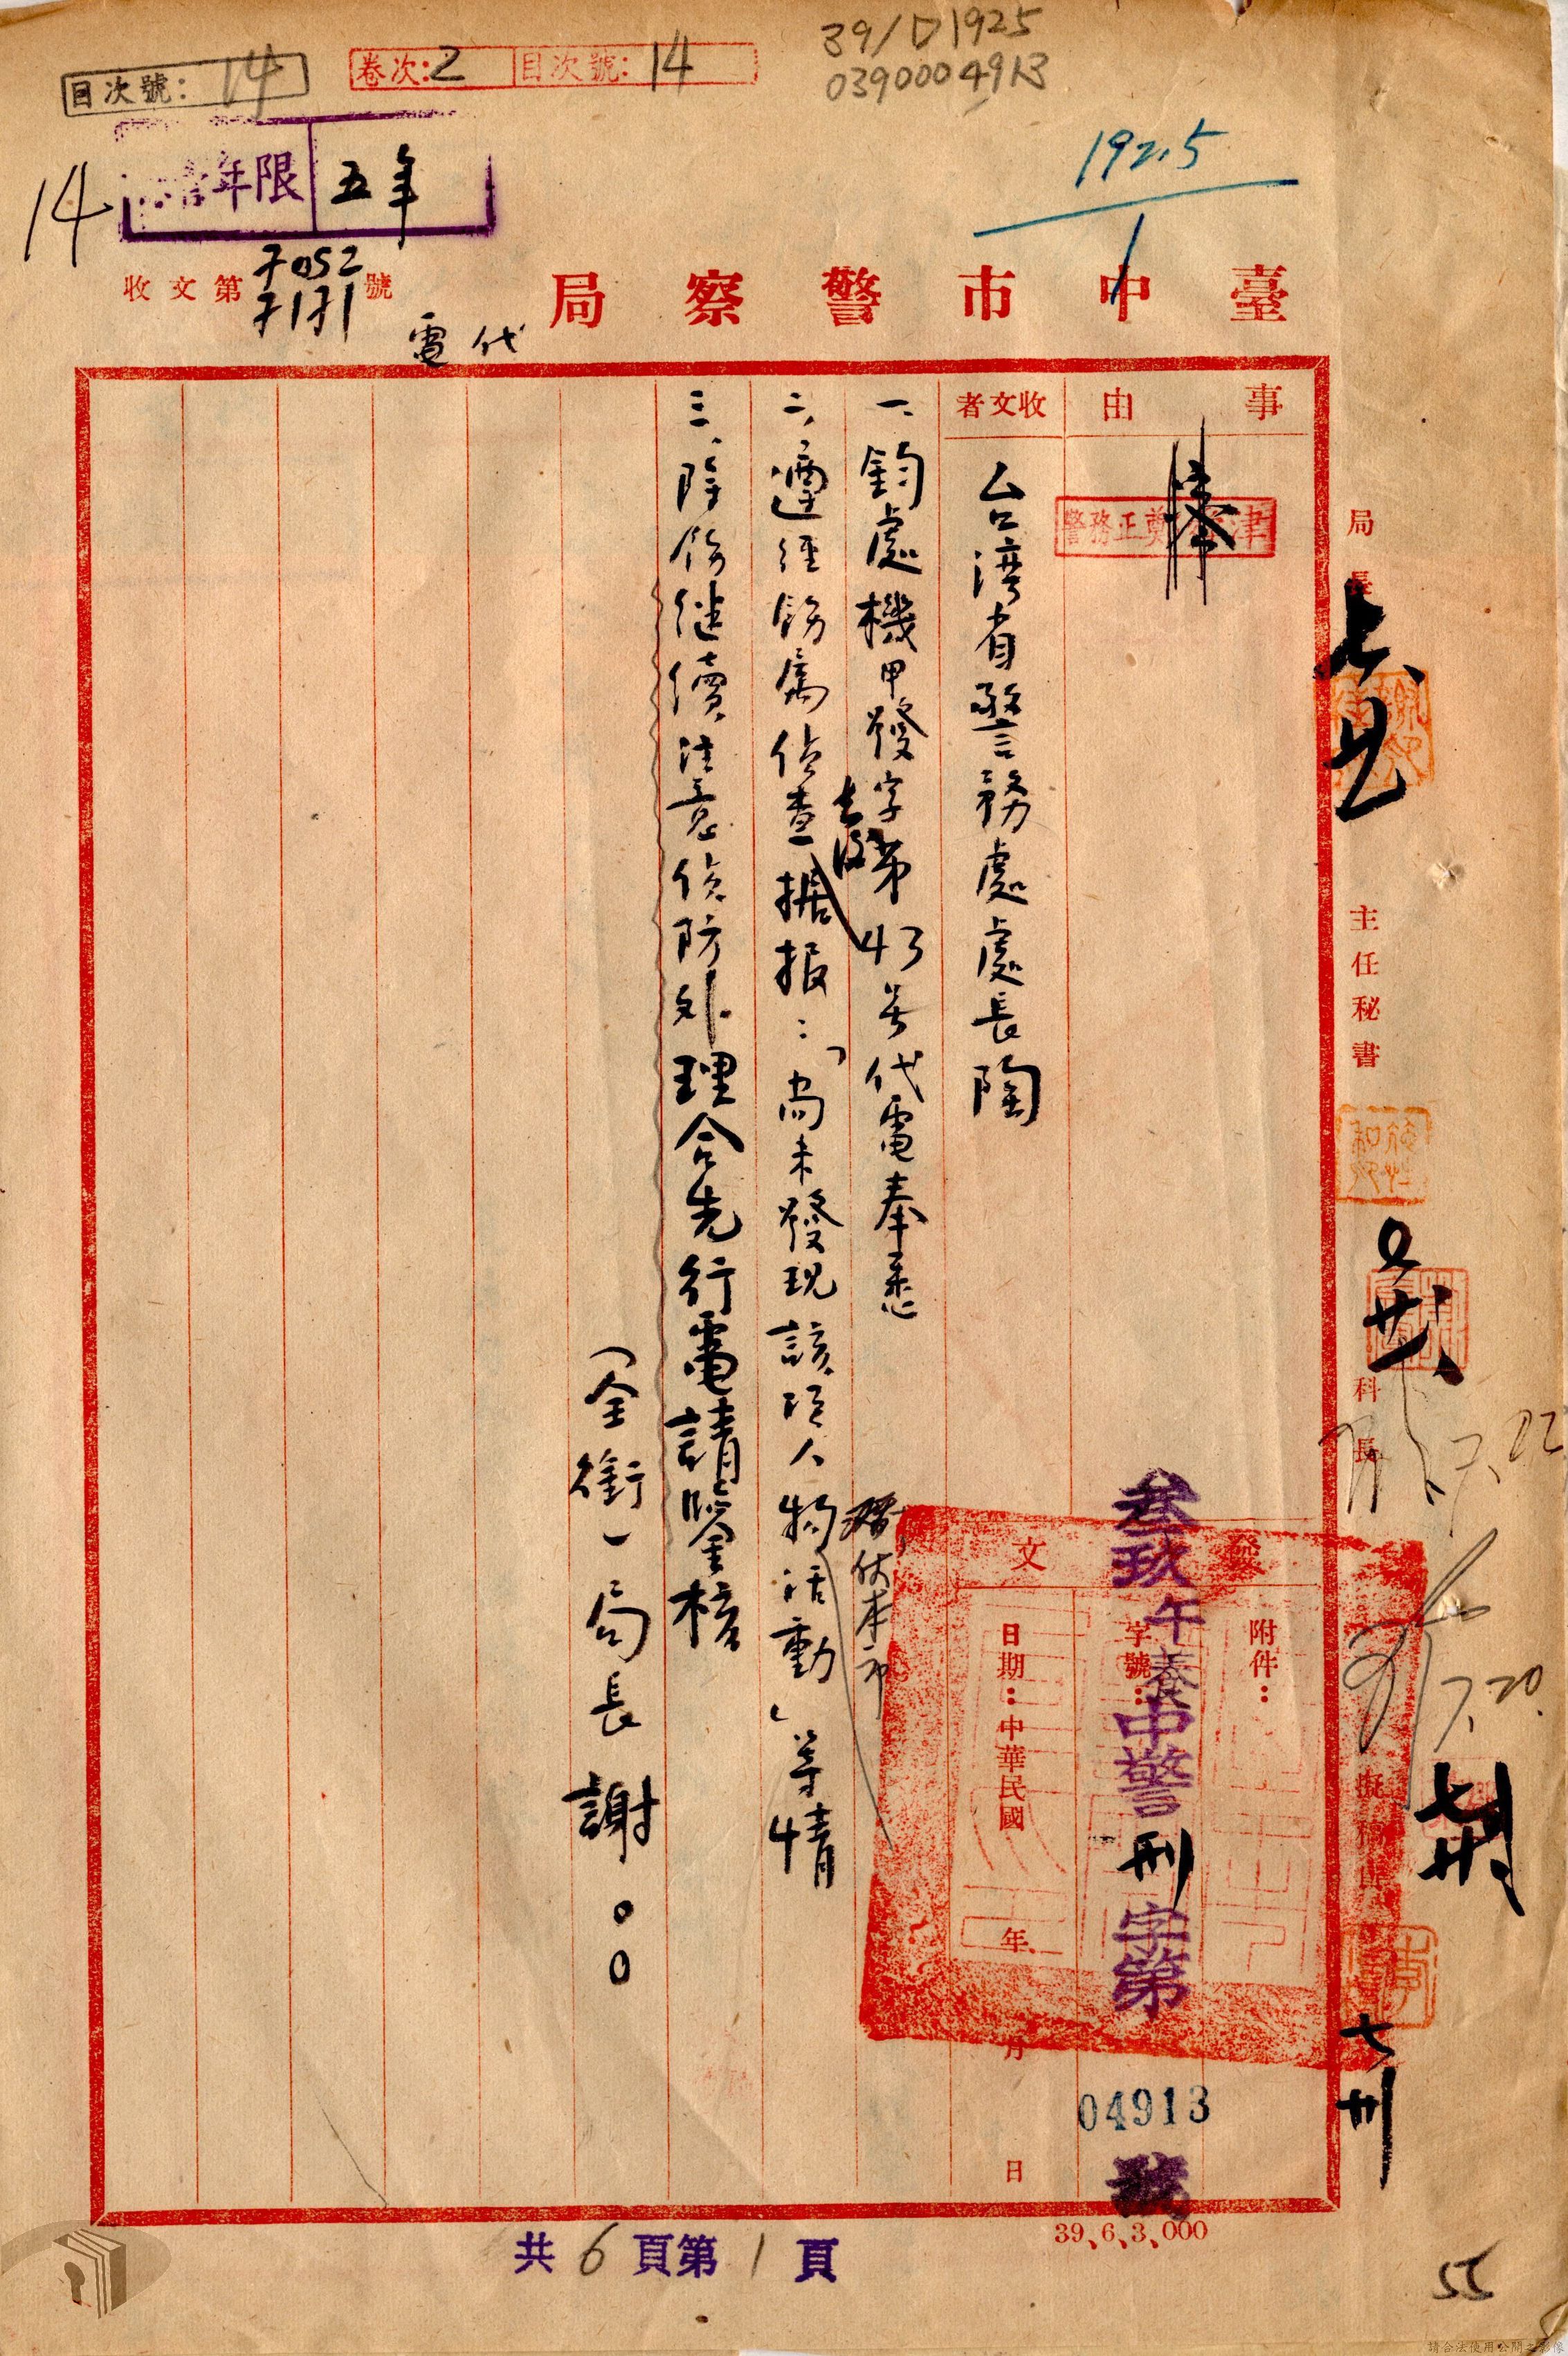 39/D1925
0390004913
目次號：14
卷次：2 目次號：14
1925
1
14
年限 五年
收文第 號
7052
7171
臺中市警察局
代電
事由
收文者
台湾省警務處處長陶
一、鈞處機甲發字第43号代電奉悉
二、遵經飭屬偵查据报：「尚未發現該項人物活動」等情
潛伏本市
三、除飭继續注意偵防外理合先行電請鑒核
（全銜）局長謝００
局長
主任秘書
科長
7.22
7.20.
發文
附件：
字號：
叁玖午養中警刑字第
04913
號
日期：中華民國 年 月 日
七
39、6、3、000
共6頁第1頁
55
請合法使用公開之影像